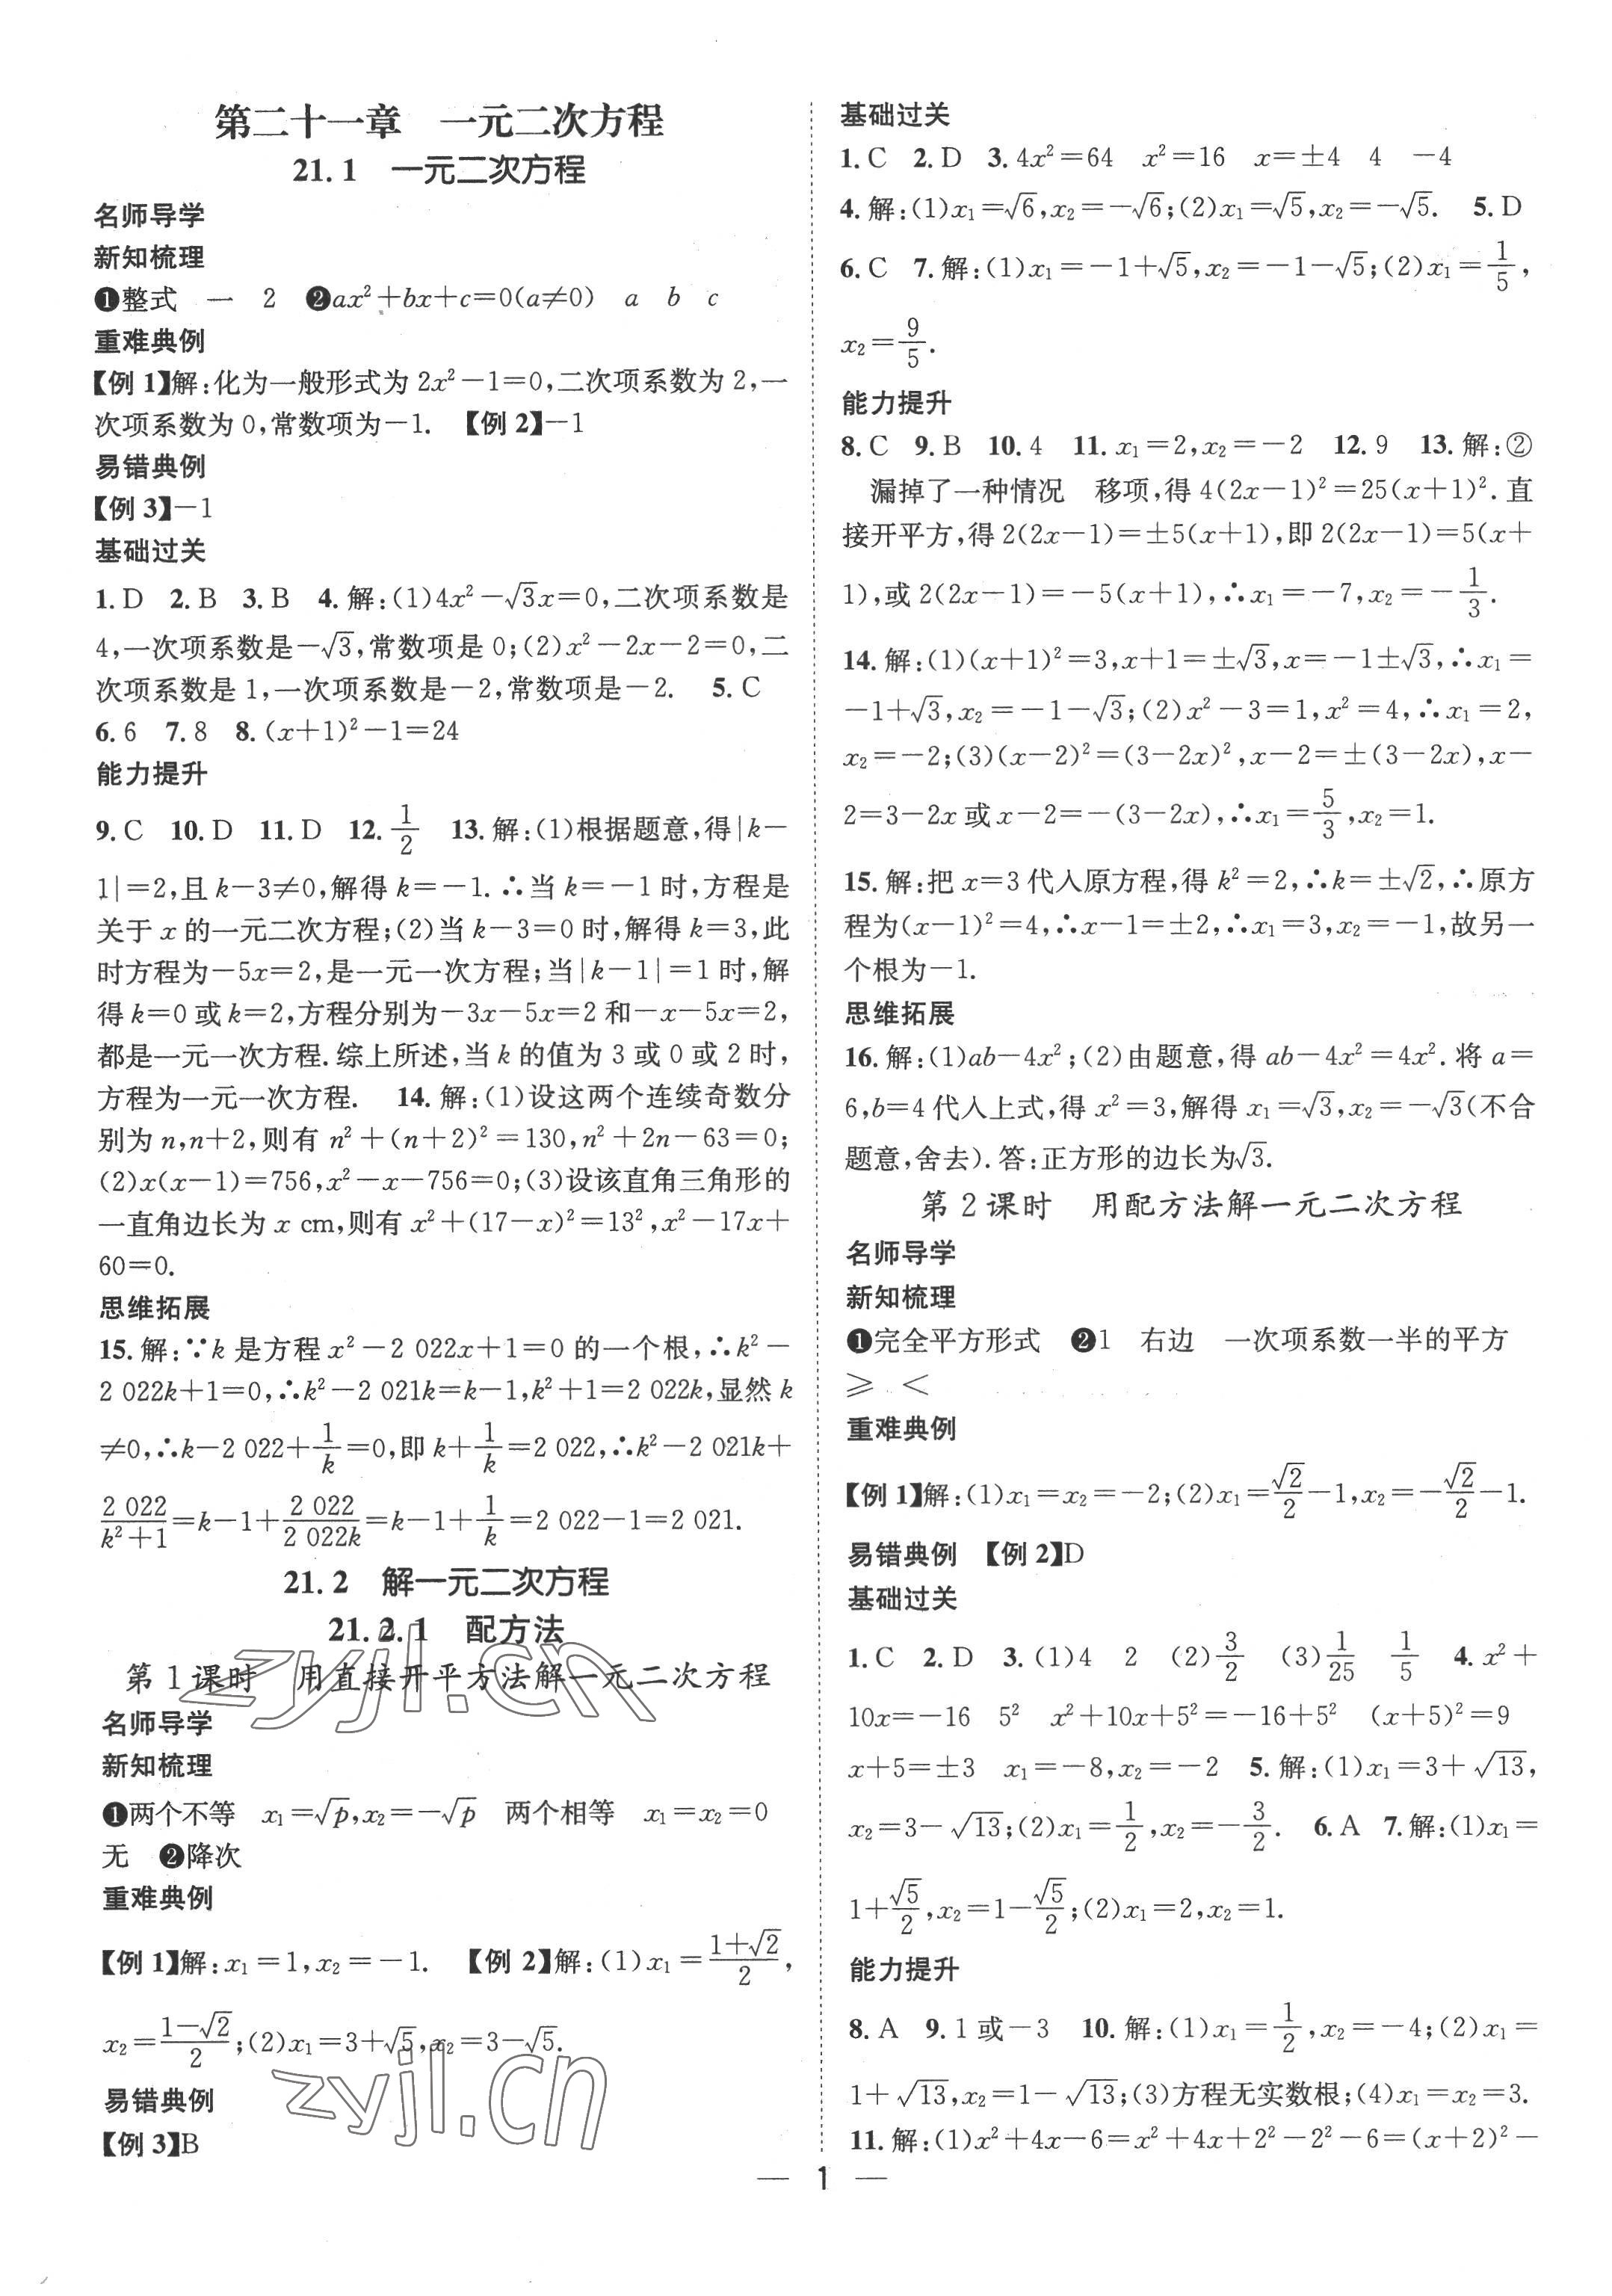 第二十一章　一元二次方程
21.1　一元二次方程
名师导学
新知梳理
❶整式　一　2　❷ax²+bx+c=0(a≠0)　a　b　c
重难典例
【例1】解:化为一般形式为2x²-1=0,二次项系数为2,一
次项系数为0,常数项为-1.　【例2】-1
易错典例
【例3】-1
基础过关
1.D　2.B　3.B　4.解:(1)4x²-√3x=0,二次项系数是
4,一次项系数是-√3,常数项是0;(2)x²-2x-2=0,二
次项系数是1,一次项系数是-2,常数项是-2.　5.C
6.6　7.8　8.(x+1)²-1=24
能力提升
9.C　10.D　11.D　12.1/2　13.解:(1)根据题意,得|k-
1|=2,且k-3≠0,解得k=-1.∴当k=-1时,方程是
关于x的一元二次方程;(2)当k-3=0时,解得k=3,此
时方程为-5x=2,是一元一次方程;当|k-1|=1时,解
得k=0或k=2,方程分别为-3x-5x=2和-x-5x=2,
都是一元一次方程.综上所述,当k的值为3或0或2时,
方程为一元一次方程.　14.解:(1)设这两个连续奇数分
别为n,n+2,则有n²+(n+2)²=130,n²+2n-63=0;
(2)x(x-1)=756,x²-x-756=0;(3)设该直角三角形的
一直角边长为x cm,则有x²+(17-x)²=13²,x²-17x+
60=0.
思维拓展
15.解:∵k是方程x²-2 022x+1=0的一个根,∴k²-
2 022k+1=0,∴k²-2 021k=k-1,k²+1=2 022k,显然k
≠0,∴k-2 022+1/k=0,即k+1/k=2 022,∴k²-2 021k+
2 022/(k²+1)=k-1+2 022/2 022k=k-1+1/k=2 022-1=2 021.
21.2　解一元二次方程
21.2.1　配方法
第1课时　用直接开平方法解一元二次方程
名师导学
新知梳理
❶两个不等　x₁=√p,x₂=-√p　两个相等　x₁=x₂=0
无　❷降次
重难典例
【例1】解:x₁=1,x₂=-1.　【例2】解:(1)x₁=(1+√2)/2,
x₂=(1-√2)/2;(2)x₁=3+√5,x₂=3-√5.
易错典例
【例3】B
基础过关
1.C　2.D　3.4x²=64　x²=16　x=±4　4　-4
4.解:(1)x₁=√6,x₂=-√6;(2)x₁=√5,x₂=-√5.　5.D
6.C　7.解:(1)x₁=-1+√5,x₂=-1-√5;(2)x₁=1/5,
x₂=9/5.
能力提升
8.C　9.B　10.4　11.x₁=2,x₂=-2　12.9　13.解:②
漏掉了一种情况　移项,得4(2x-1)²=25(x+1)².直
接开平方,得2(2x-1)=±5(x+1),即2(2x-1)=5(x+
1),或2(2x-1)=-5(x+1),∴x₁=-7,x₂=-1/3.
14.解:(1)(x+1)²=3,x+1=±√3,x=-1±√3,∴x₁=
-1+√3,x₂=-1-√3;(2)x²-3=1,x²=4,∴x₁=2,
x₂=-2;(3)(x-2)²=(3-2x)²,x-2=±(3-2x),x-
2=3-2x或x-2=-(3-2x),∴x₁=5/3,x₂=1.
15.解:把x=3代入原方程,得k²=2,∴k=±√2,∴原方
程为(x-1)²=4,∴x-1=±2,∴x₁=3,x₂=-1,故另一
个根为-1.
思维拓展
16.解:(1)ab-4x²;(2)由题意,得ab-4x²=4x².将a=
6,b=4代入上式,得x²=3,解得x₁=√3,x₂=-√3(不合
题意,舍去).答:正方形的边长为√3.
第2课时　用配方法解一元二次方程
名师导学
新知梳理
❶完全平方形式　❷1　右边　一次项系数一半的平方
≥　<
重难典例
【例1】解:(1)x₁=x₂=-2;(2)x₁=√2/2-1,x₂=-√2/2-1.
易错典例　【例2】D
基础过关
1.C　2.D　3.(1)4　2　(2)3/2　(3)1/25　1/5　4.x²+
10x=-16　5²　x²+10x+5²=-16+5²　(x+5)²=9
x+5=±3　x₁=-8,x₂=-2　5.解:(1)x₁=3+√13,
x₂=3-√13;(2)x₁=1/2,x₂=-3/2.　6.A　7.解:(1)x₁=
1+√5/2,x₂=1-√5/2;(2)x₁=2,x₂=1.
能力提升
8.A　9.1或-3　10.解:(1)x₁=1/2,x₂=-4;(2)x₁=
1+√13,x₂=1-√13;(3)方程无实数根;(4)x₁=x₂=3.
11.解:(1)x²+4x-6=x²+4x+2²-2²-6=(x+2)²-
— 1 —
zyjl.cn
zyjl.cn